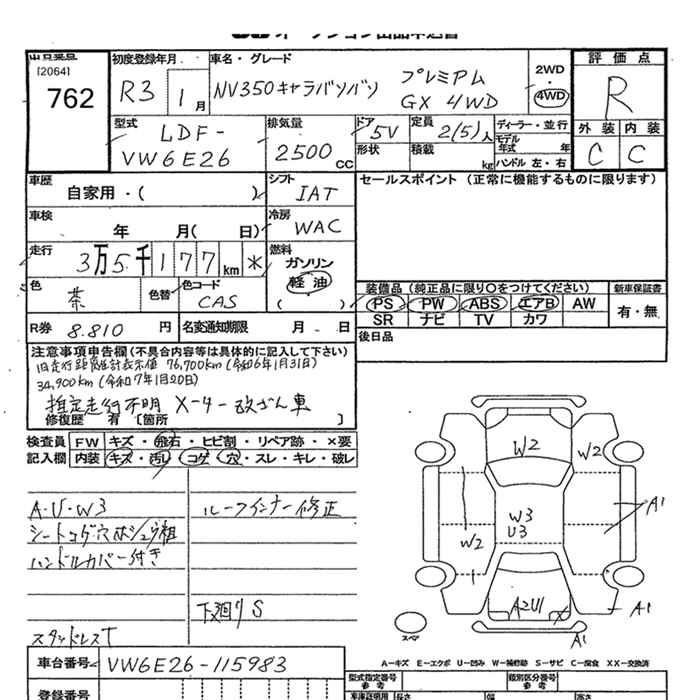 オークション出品申込書
出品番号 初度登録年月 車名・グレード 評価点
[2064]
762 R3 1月 NV350キャラバンバン プレミアム GX 4WD 2WD・4WD R
型式 排気量 ドア 定員 ディーラー・並行 外装 内装
LDF-VW6E26 2500CC 5V 2(5)人 モデル年式 年 C C
形状 積載 kg ハンドル 左・右
車歴 シフト セールスポイント (正常に機能するものに限ります)
自家用・( ) IAT
車検 冷房
年 月( 日) WAC
走行 燃料
3万5千177km * ガソリン
軽油
色 色替 色コード 装備品 (純正品に限り○をつけてください) 新車保証書
茶 CAS ( ) PS PW ABS エアB AW 有・無
SR ナビ TV カワ
R券 8.810円 名変通知期限 月 - 日 後日品
注意事項申告欄 (不具合内容等は具体的に記入して下さい)
旧走行距離計表示値 76,700km (令和6年1月31日)
34,900km (令和7年1月20日)
推定走行不明 メーター改ざん車
修復歴 有 [箇所 ]
検査員 FW キズ・飛石・ヒビ割・リペア跡・×要
記入欄 内装 キズ・汚れ・コゲ・穴・スレ・キレ・破レ
A・U・W3 ルーフインナー修正
シートコゲ穴
ハンドルカバー付き
下廻りS
スタッドレスT
W2
W3
U3
W2
A1
A2U1
A1
A1
スペア
A─キズ E─エクボ U─凹み W─補修跡 S─サビ C─腐食 XX─交換済
車台番号 VW6E26-115983 型式指定番号 参考 類別区分番号 参考
登録番号 車庫証明用 長さ 幅 高さ